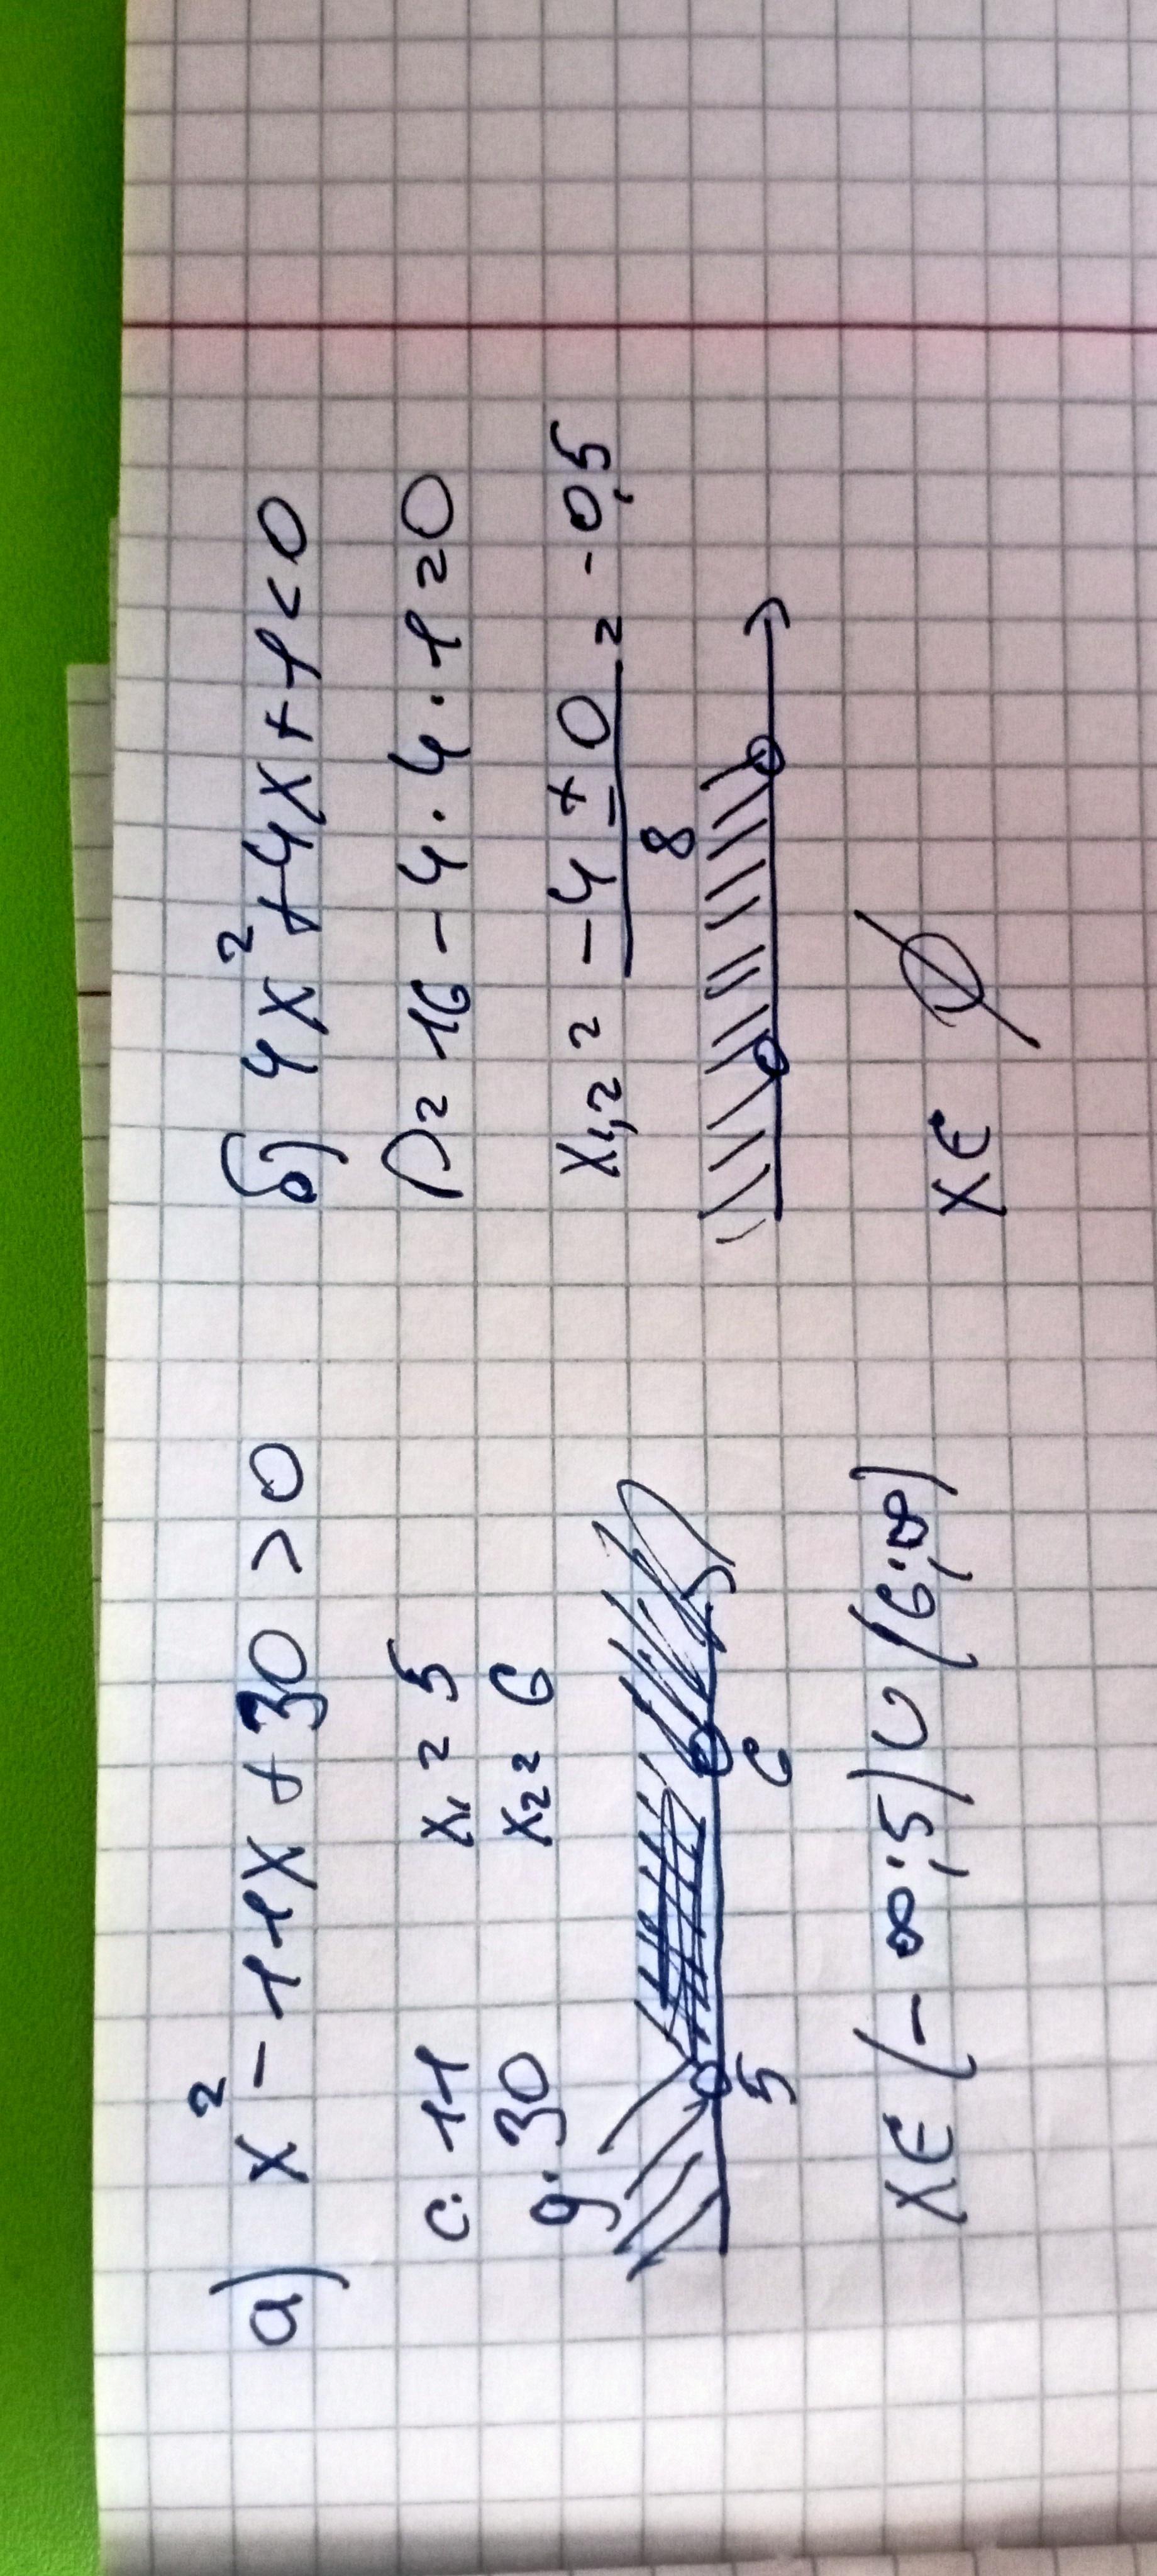 а) x² - 11x + 30 > 0
с. 11 x₁ = 5
д. 30 x₂ = 6
5 6
x ∈ (-∞; 5) ∪ (6; ∞)
б) 4x² + 4x + 1 < 0
D = 16 - 4 · 4 · 1 = 0
x₁,₂ = (-4 ± 0)/8 = -0,5
x ∈ ∅